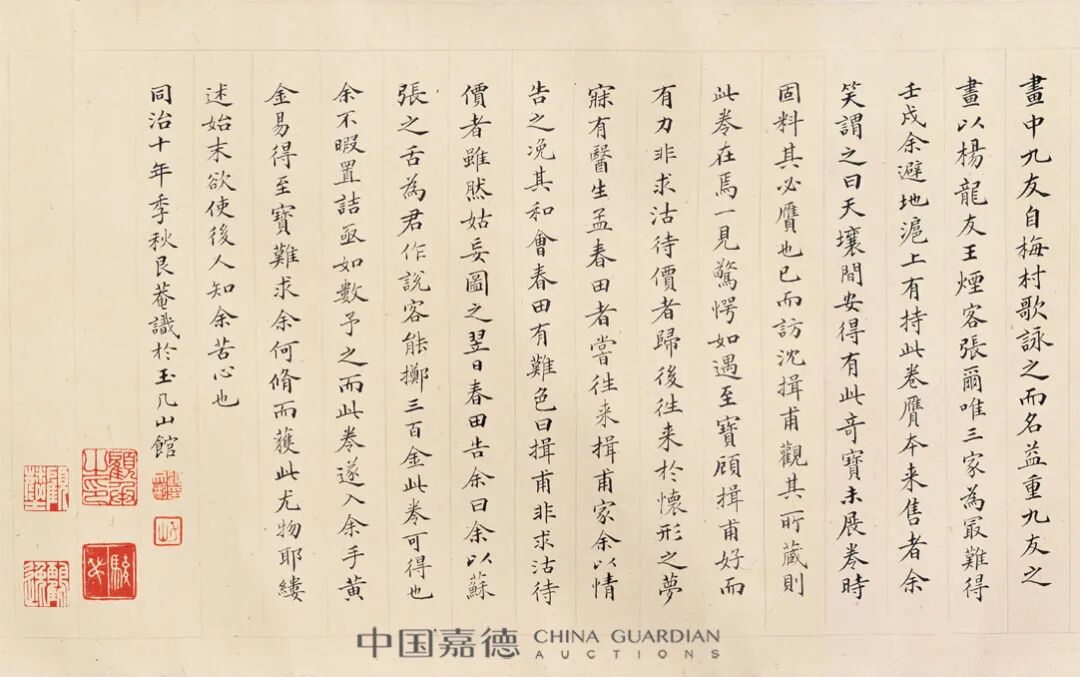 畫中九友自梅村歌詠之而名益重九友之
畫以楊龍友王煙客張爾唯三家為冣難得
壬戌余避地滬上有持此卷贋本来售者余
笑謂之曰天壤間安得有此竒寶未展卷時
固料其必贋也已而訪沈揖甫觀其所蔵則
此卷在焉一見驚愕如遇至寶顧揖甫好而
有力非求沽待價者歸後徃来於懷形之夢
寐有醫生孟春田者嘗徃来揖甫家余以情
告之浼其和會春田有難色曰揖甫非求沽待
價者雖然姑妄圖之翌日春田告余曰余以蘇
張之舌為君作說客能擲三百金此卷可得也
余不暇置詰亟如數予之而此卷遂入余手黄
金易得至寶難求余何脩而獲此尤物耶縷
述始末欲使後人知余苦心也
同治十年季秋艮菴識於玉几山館
中国嘉德 CHINA GUARDIAN
AUCTIONS